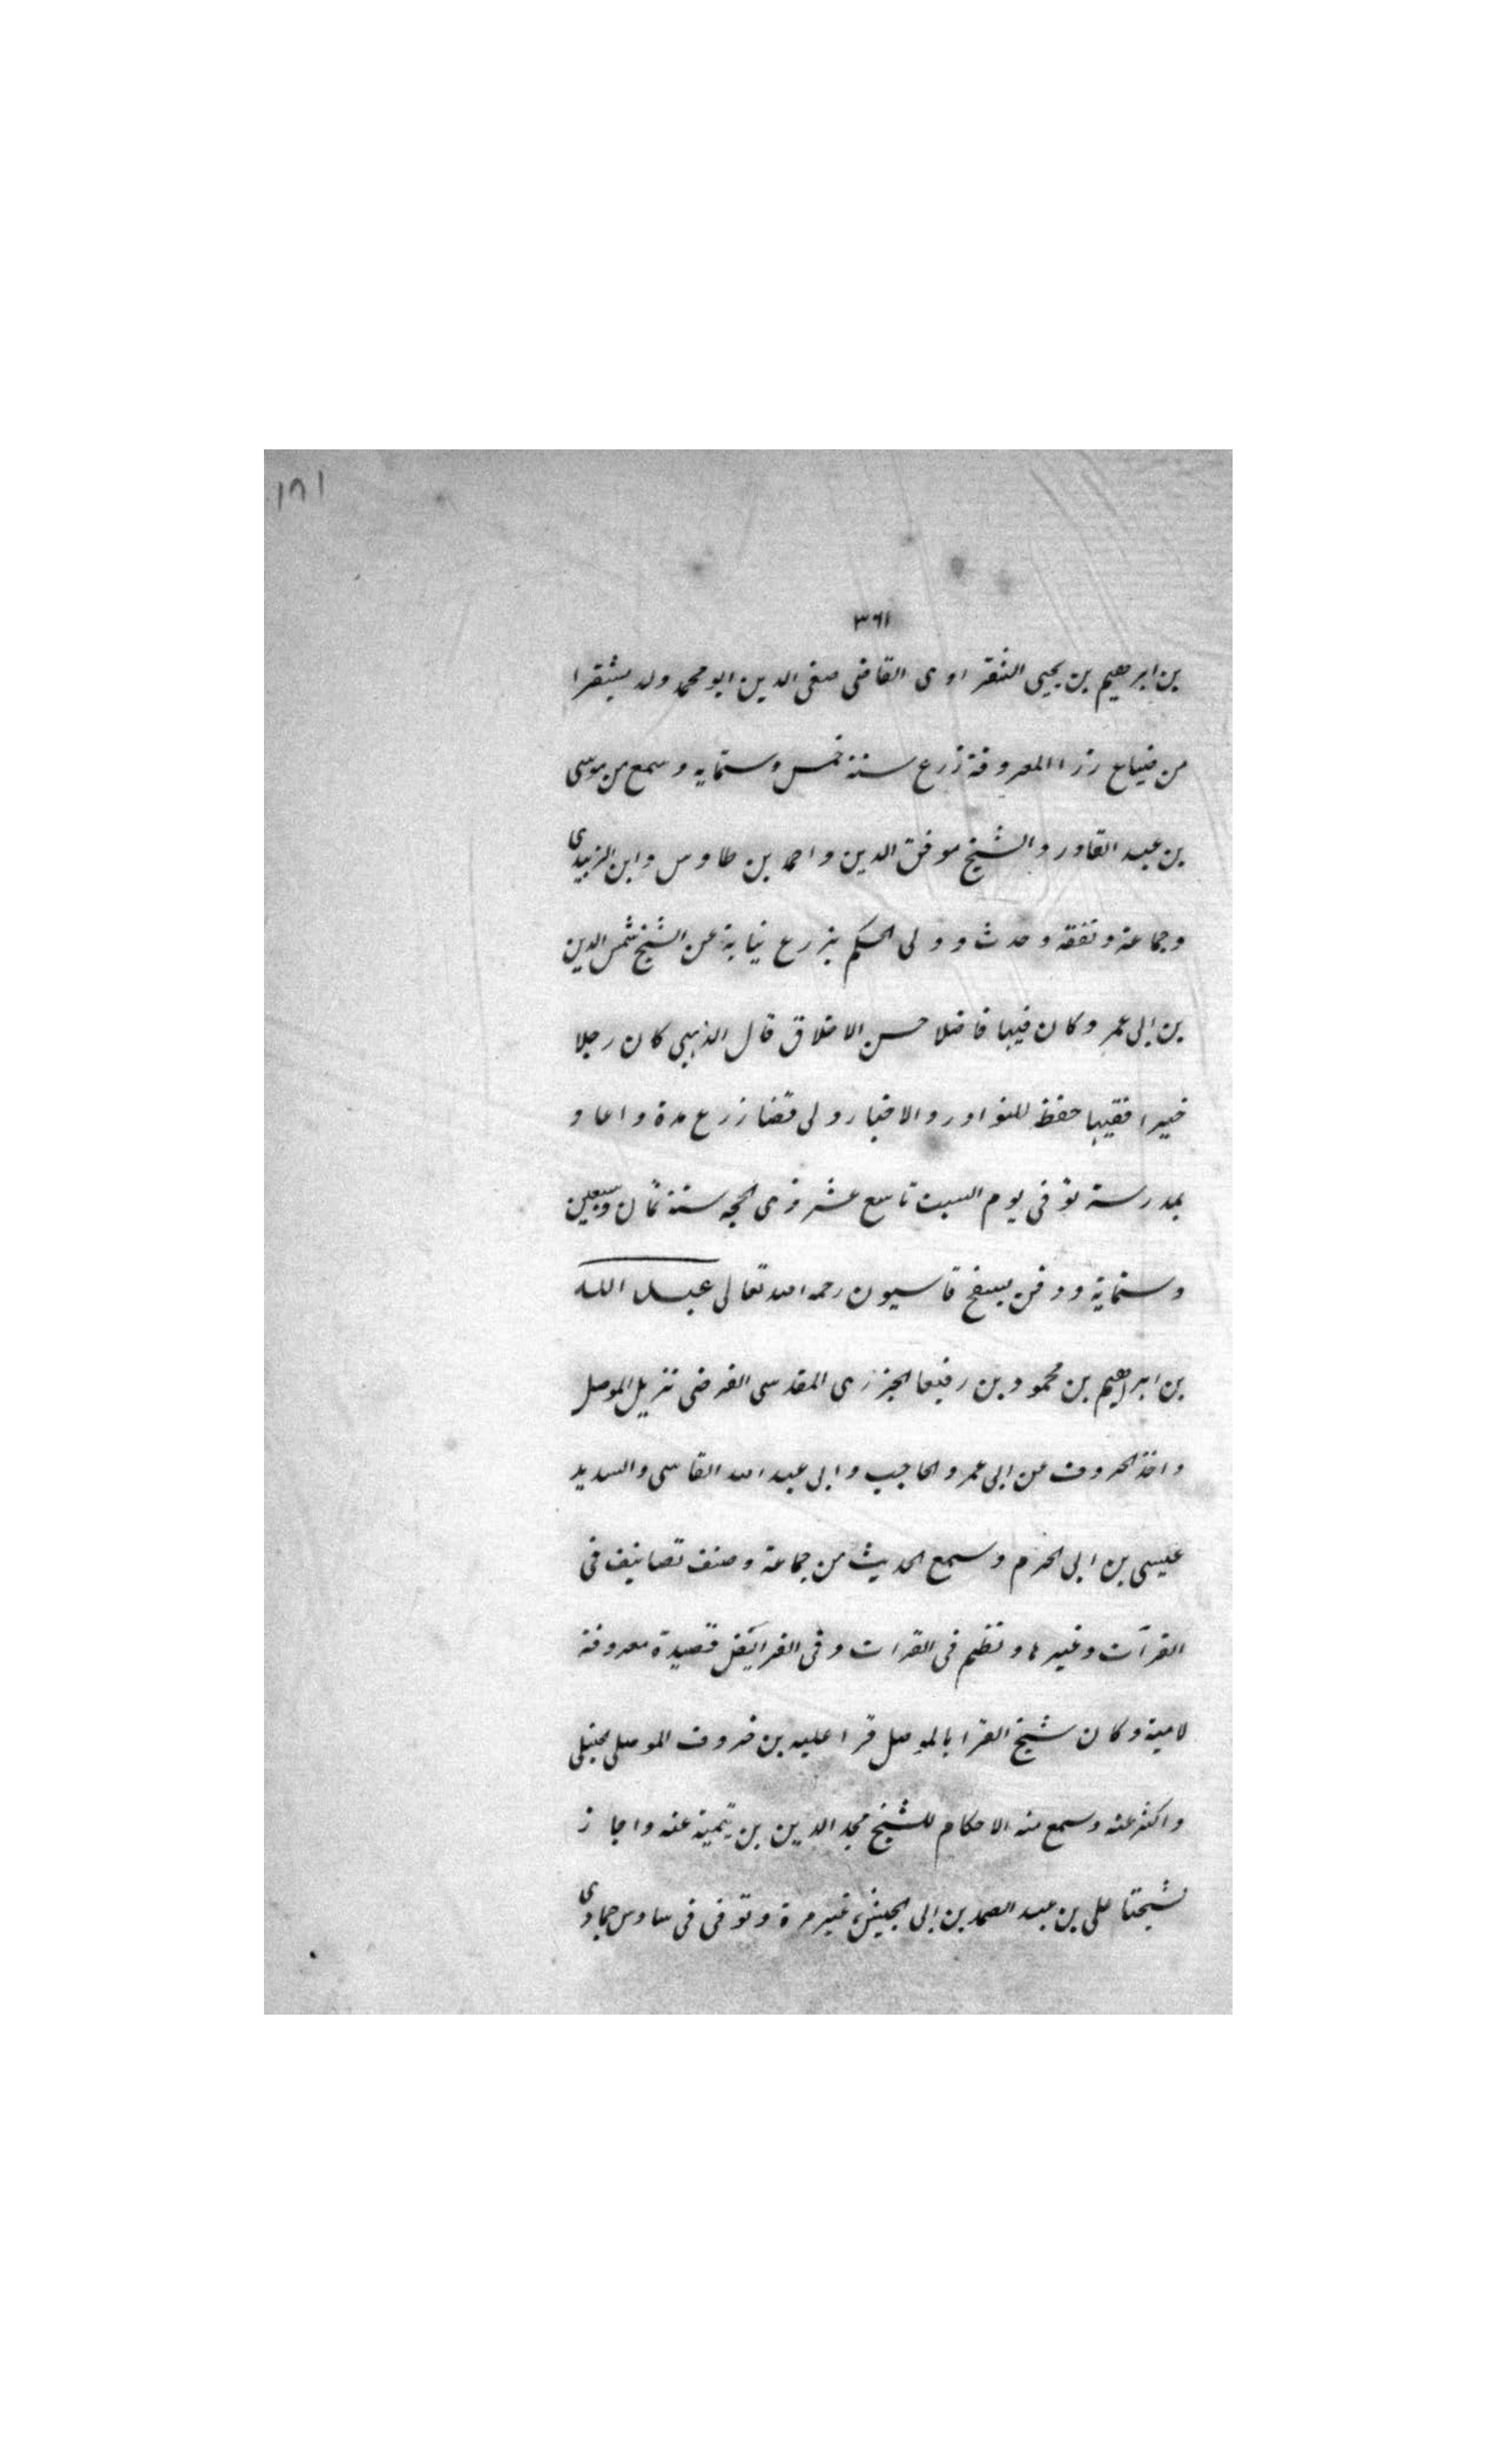 ١٨١
٣٦١
بن ابرهيم بن يحيى الشقراوى القاضى صفى الدين ابو محمد ولد بشقرا
من ضياع زرا المعروفة زرع سنة خمس وستمايه وسمع من موسى
بن عبد القادر والشيخ موفق الدين واحمد بن طاوس وابن الزبيدى
وجماعة وتفقه وحدث وولى الحكم بزرع نيابة عن الشيخ شمس الدين
بن ابى عمر وكان فقيها فاضلا حسن الاخلاق قال الذهبى كان رجلا
خيرا فقيها حفظ للنوادر والاخبار ولى قضا زرع مدة واعاد
بمدرسة توفى يوم السبت تاسع عشر ذى الحجه سنة ثمان وسبعين
وستماية ودفن بسفح قاسيون رحمه الله تعالى عبد الله
بن ابراهيم بن محمود بن رفيعا الجزرى المقدسى الفرضى نزيل الموصل
واخذ الحروف عن ابى عمرو الحاجب وابى عبد الله الفاسى والسديد
عيسى بن ابى الحرم وسمع الحديث من جماعة وصنف تصانيف فى
القرآت وغيرها ونظم فى القرات وفى الفرائض قصيدة معروفة
لامية وكان شيخ القرا بالموصل قرا عليه بن خروف الموصلى الحنبلى
واكثر عنه وسمع منه الاحكام للشيخ مجد الدين بن تيمية عنه واجاز
لشيختا على بن عبد الصمد بن ابى الجيش غير مرة وتوفى فى سادس جمادى